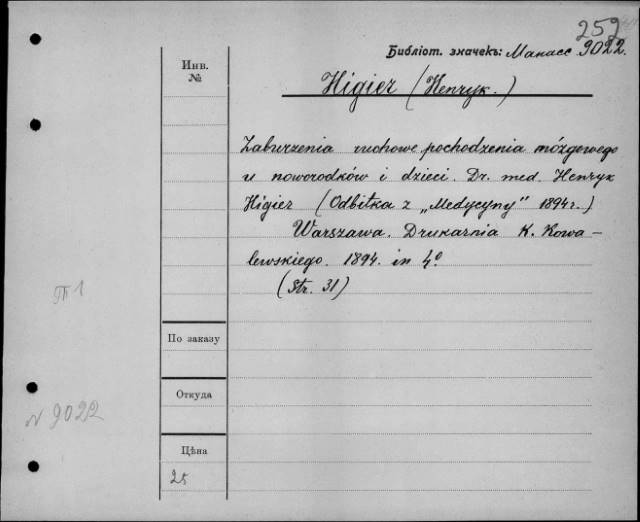 252
Библіот. значекъ: Манасс 9022.
Инв.
№
Higier (Henryk.)
Zaburzenia ruchowe pochodzenia mózgowego
u noworodków i dzieci. Dr. med. Henryk
Higier (Odbitka z „Medycyny" 1894 r.)
Warszawa. Drukarnia K. Kowa-
lewskiego. 1894. in 4º
(Str. 31)
По заказу
Откуда
N 9022
Цѣна
25